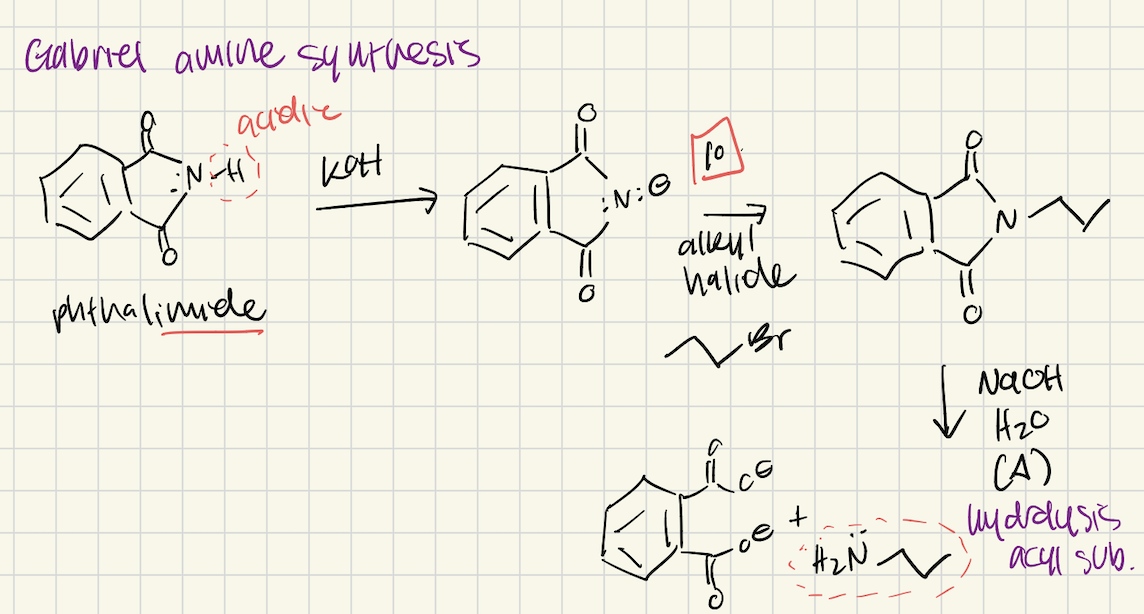 Gabriel amine synthesis
acidic
O
N-H
O
phthalimide
KOH
O
N:⊖
O
1°
alkyl
halide
Br
O
N
O
NaOH
H₂O
(Δ)
hydrolysis
acyl sub.
O
O⊖
+
O⊖
O
H₂N̈